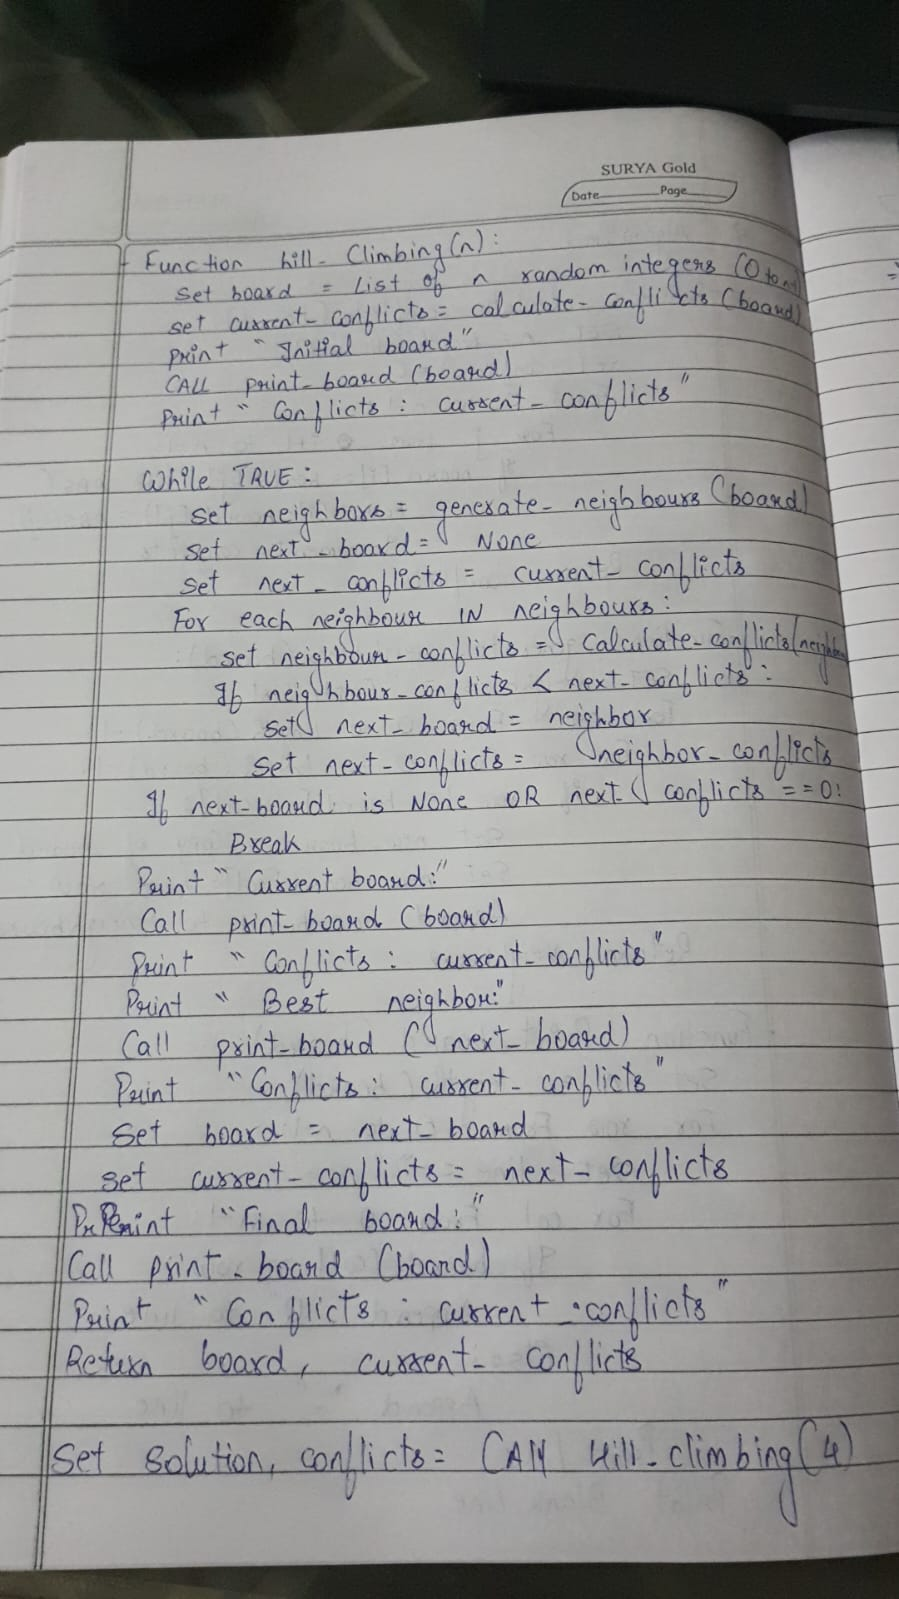 SURYA Gold
Date Page
Function hill-Climbing(n):
Set board = List of n random integers (0 to
set current-conflicts = calculate-conflicts (board)
print "Initial board"
CALL print-board (board)
Print "Conflicts : current-conflicts"
While TRUE :
set neighbors = generate-neighbours (board)
set next-board = None
set next-conflicts = current-conflicts
For each neighbour IN neighbours :
set neighbour-conflicts = Calculate-conflicts(
If neighbour-conflicts < next-conflicts :
set next-board = neighbor
Set next-conflicts = neighbor-conflicts
If next-board is None OR next-conflicts == 0:
Break
Print "Current board:"
Call print-board (board)
Print "Conflicts : current-conflicts"
Print "Best neighbor:"
Call print-board (next-board)
Print "Conflicts : current-conflicts"
Set board = next-board
set current-conflicts = next-conflicts
Print "Final board:"
Call print-board (board)
Print "Conflicts : current-conflicts"
Return board, current-conflicts
Set Solution, conflicts = Hill-climbing(4)